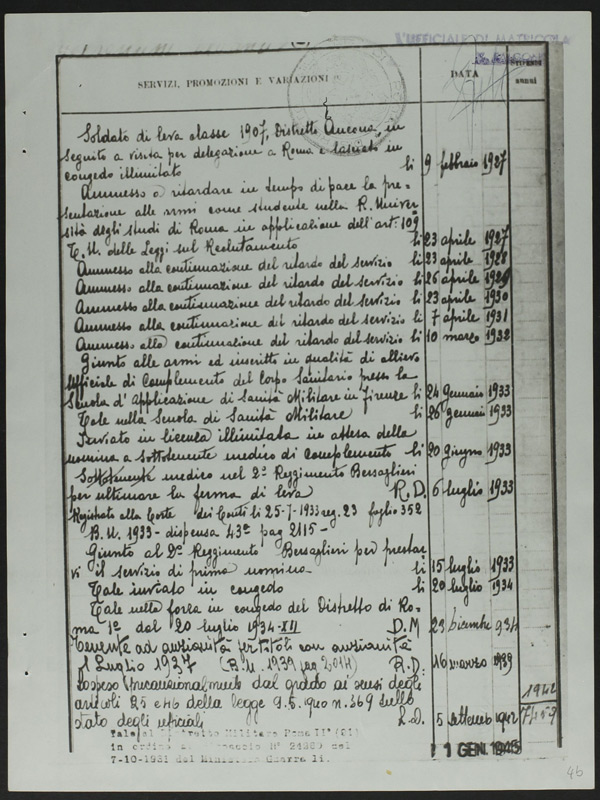 L'UFFICIALE DI MATRICOLA
SERVIZI, PROMOZIONI E VARIAZIONI
DATA
annui
Soldato di leva classe 1907, Distretto Ancona, in
seguito a visita per delegazione a Roma e lasciato in
congedo illimitato li 9 febbraio 1927
Ammesso a ritardare in tempo di pace la pre-
sentazione alle armi come studente nella R. Univer
sità degli studi di Roma in applicazione dell'art. 109
T. U. delle Leggi sul Reclutamento li 23 aprile 1927
Ammesso alla continuazione del ritardo del servizio li 23 aprile 1928
Ammesso alla continuazione del ritardo del servizio li 26 aprile 1929
Ammesso alla continuazione del ritardo del servizio li 23 aprile 1930
Ammesso alla continuazione del ritardo del servizio li 7 aprile 1931
Ammesso alla continuazione del ritardo del servizio li 10 marzo 1932
Giunto alle armi ed inscritto in qualità di allievo
Ufficiale di Complemento del Corpo Sanitario presso la
Scuola d'Applicazione di Sanità Militare in Firenze li 24 Gennaio 1933
Tale nella Scuola di Sanità Militare li 26 gennaio 1933
Inviato in licenza illimitata in attesa della
nomina a Sottotenente medico di Complemento li 20 giugno 1933
Sottotenente medico nel 2º Reggimento Bersaglieri
per ultimare la ferma di leva R.D. 6 luglio 1933
Registrato alla Corte dei Conti li 25-7-1933 reg. 23 foglio 352
B. U. 1933 - dispensa 43ª pag 2115 -
Giunto al 2º Reggimento Bersaglieri per prestar
vi il servizio di prima nomina li 15 luglio 1933
Tale inviato in congedo li 20 luglio 1934
Tale nella forza in congedo del Distretto di Ro-
ma 1º dal 20 luglio 1934-XII D.M 23 dicembre 934
Tenente ad anzianità con anzianità
1 Luglio 1937 (B.U. 1939 pag 2014) R.D. 16 marzo 1939
Sospeso dal grado ai sensi degli
articoli 25 e 46 della legge 9.5.940 n.369 sullo
stato degli ufficiali R.D. 5 settembre 1942
1942
7459
Tale al Distretto Militare Roma IIº (21)
in ordine al Dispaccio Nº 24380 del
7-10-1931 del Ministero Guerra li.
1 GEN. 1943
46